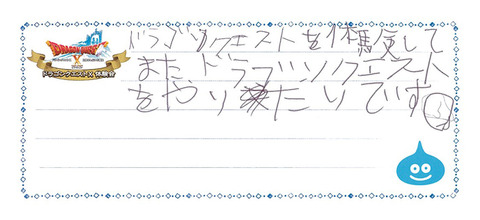 DRAGON QUEST X
ドラゴンクエストX 体験会
ドラゴンクエストを体験して
またドラゴンクエスト
をやりたいです